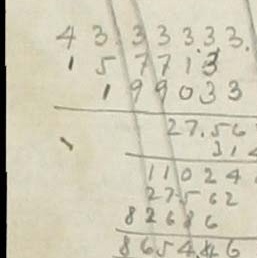 4 3 3 3 3.3 3.
1 5 7 7 1 3
1 9 9 0 3 3
27.56
314
11024
27562
82686
865486